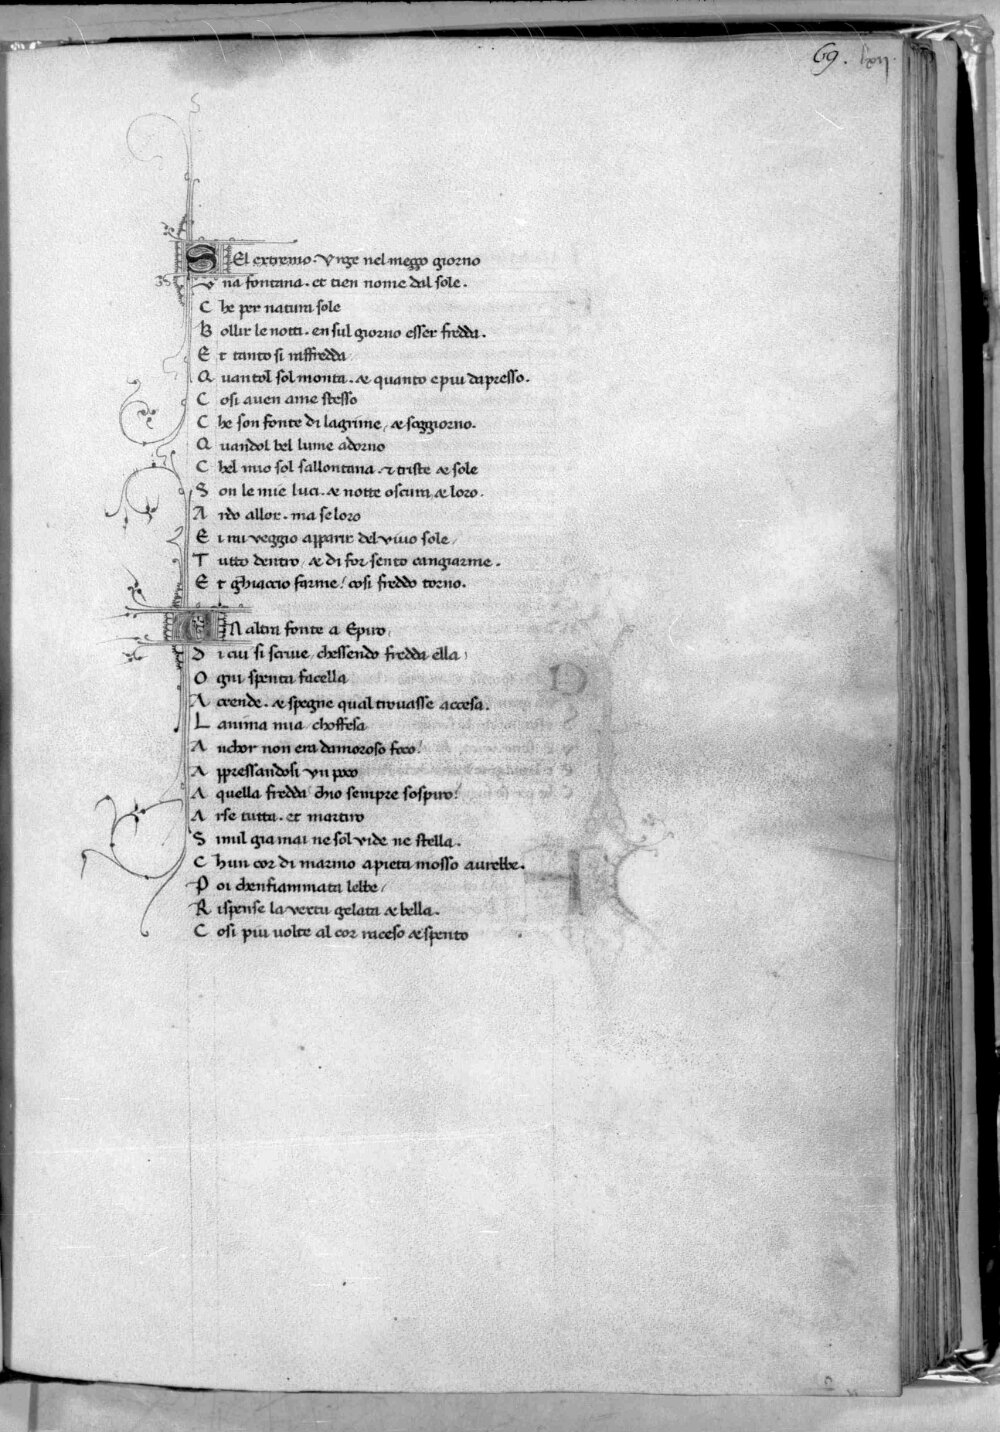 69. lxii.
SEl extremo. Vrge nel meggo giorno
35 V na fontana. et tien nome dal sole.
C he per natura sole
B ollir le notti. en sul giorno esser fredda.
E t tanto si raffredda
Q uantol sol monta. æ quanto e piu dapresso.
C osi auen ame stesso
C he son fonte di lagrime, æ soggiorno.
Q uandol bel lume adorno
C hel mio sol sallontana. et triste æ sole
S on le mie luci. æ notte oscura, æ loro.
A rdo allor. ma se loro
E i mi veggio apparir del viuo sole,
T utto dentro, æ di for sento cangiarme.
E t ghiaccio farme! cosi freddo torno.
UN altra fonte a Epiro,
D i cui si scriue, chessendo fredda ella,
O gni spenta facella
A ccende. æ spegne qual trouasse accesa.
L anima mia, choffesa
A nchor non era damoroso foco!
A ppressandosi vn poco
A quella fredda chio sempre sospiro!
A rse tutta. et martiro
S imil gia mai ne sol vide ne stella.
C hun cor di marmo a pieta mosso aurebbe.
P oi chenfiammata lebbe,
R ispense la vertu gelata æ bella.
C osi piu uolte al cor racceso æ spento